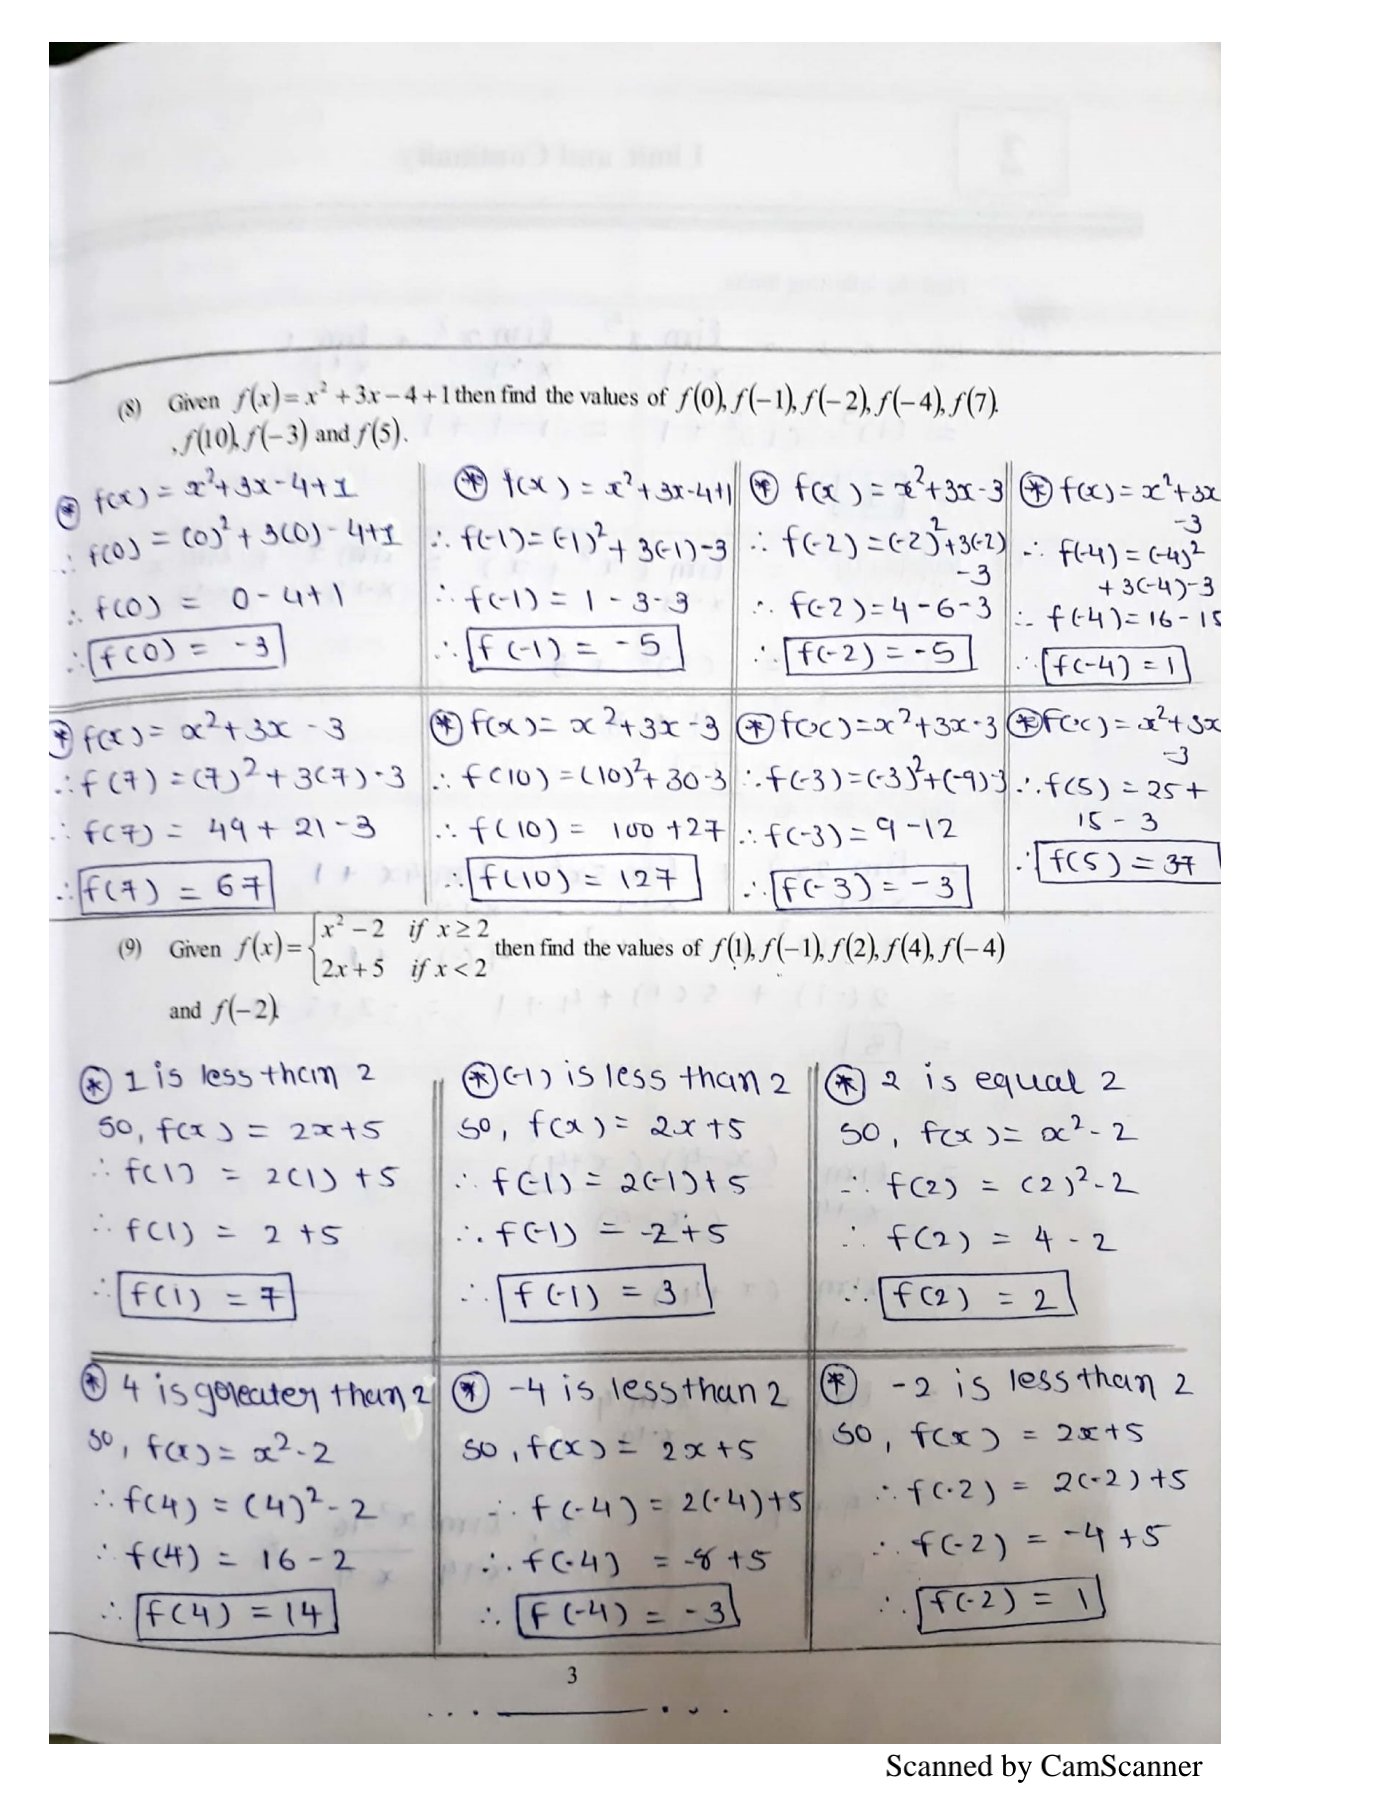 (8) Given f(x) = x² + 3x – 4 + 1 then find the values of f(0), f(–1), f(–2), f(–4), f(7).
, f(10), f(–3) and f(5).
* f(x) = x²+3x-4+1
∴ f(0) = (0)² + 3(0) - 4+1
∴ f(0) = 0-4+1
∴ f(0) = -3
* f(x) = x²+3x-4+1
∴ f(-1) = (-1)² + 3(-1)-3
∴ f(-1) = 1-3-3
∴ f(-1) = -5
* f(x) = x²+3x-3
∴ f(-2) = (-2)²+3(-2)
-3
∴ f(-2) = 4-6-3
∴ f(-2) = -5
* f(x) = x²+3x
-3
∴ f(-4) = (-4)²
+3(-4)-3
∴ f(-4) = 16-15
∴ f(-4) = 1
* f(x) = x²+3x-3
∴ f(7) = (7)²+3(7)-3
∴ f(7) = 49+21-3
∴ f(7) = 67
* f(x) = x²+3x-3
∴ f(10) = (10)²+30-3
∴ f(10) = 100+27
∴ f(10) = 127
* f(x) = x²+3x-3
∴ f(-3) = (-3)²+(-9)-3
∴ f(-3) = 9-12
∴ f(-3) = -3
* f(x) = x²+3x
-3
∴ f(5) = 25+
15-3
∴ f(5) = 37
(9) Given f(x) = { x² – 2 if x ≥ 2
2x + 5 if x < 2 then find the values of f(1), f(–1), f(2), f(4), f(–4)
and f(–2).
* 1 is less than 2
so, f(x) = 2x+5
∴ f(1) = 2(1)+5
∴ f(1) = 2+5
∴ f(1) = 7
* (-1) is less than 2
so, f(x) = 2x+5
∴ f(-1) = 2(-1)+5
∴ f(-1) = -2+5
∴ f(-1) = 3
* 2 is equal 2
so, f(x) = x²-2
∴ f(2) = (2)²-2
∴ f(2) = 4-2
∴ f(2) = 2
* 4 is greater than 2
so, f(x) = x²-2
∴ f(4) = (4)²-2
∴ f(4) = 16-2
∴ f(4) = 14
* -4 is less than 2
so, f(x) = 2x+5
∴ f(-4) = 2(-4)+5
∴ f(-4) = -8+5
∴ f(-4) = -3
* -2 is less than 2
so, f(x) = 2x+5
∴ f(-2) = 2(-2)+5
∴ f(-2) = -4+5
∴ f(-2) = 1
3
Scanned by CamScanner